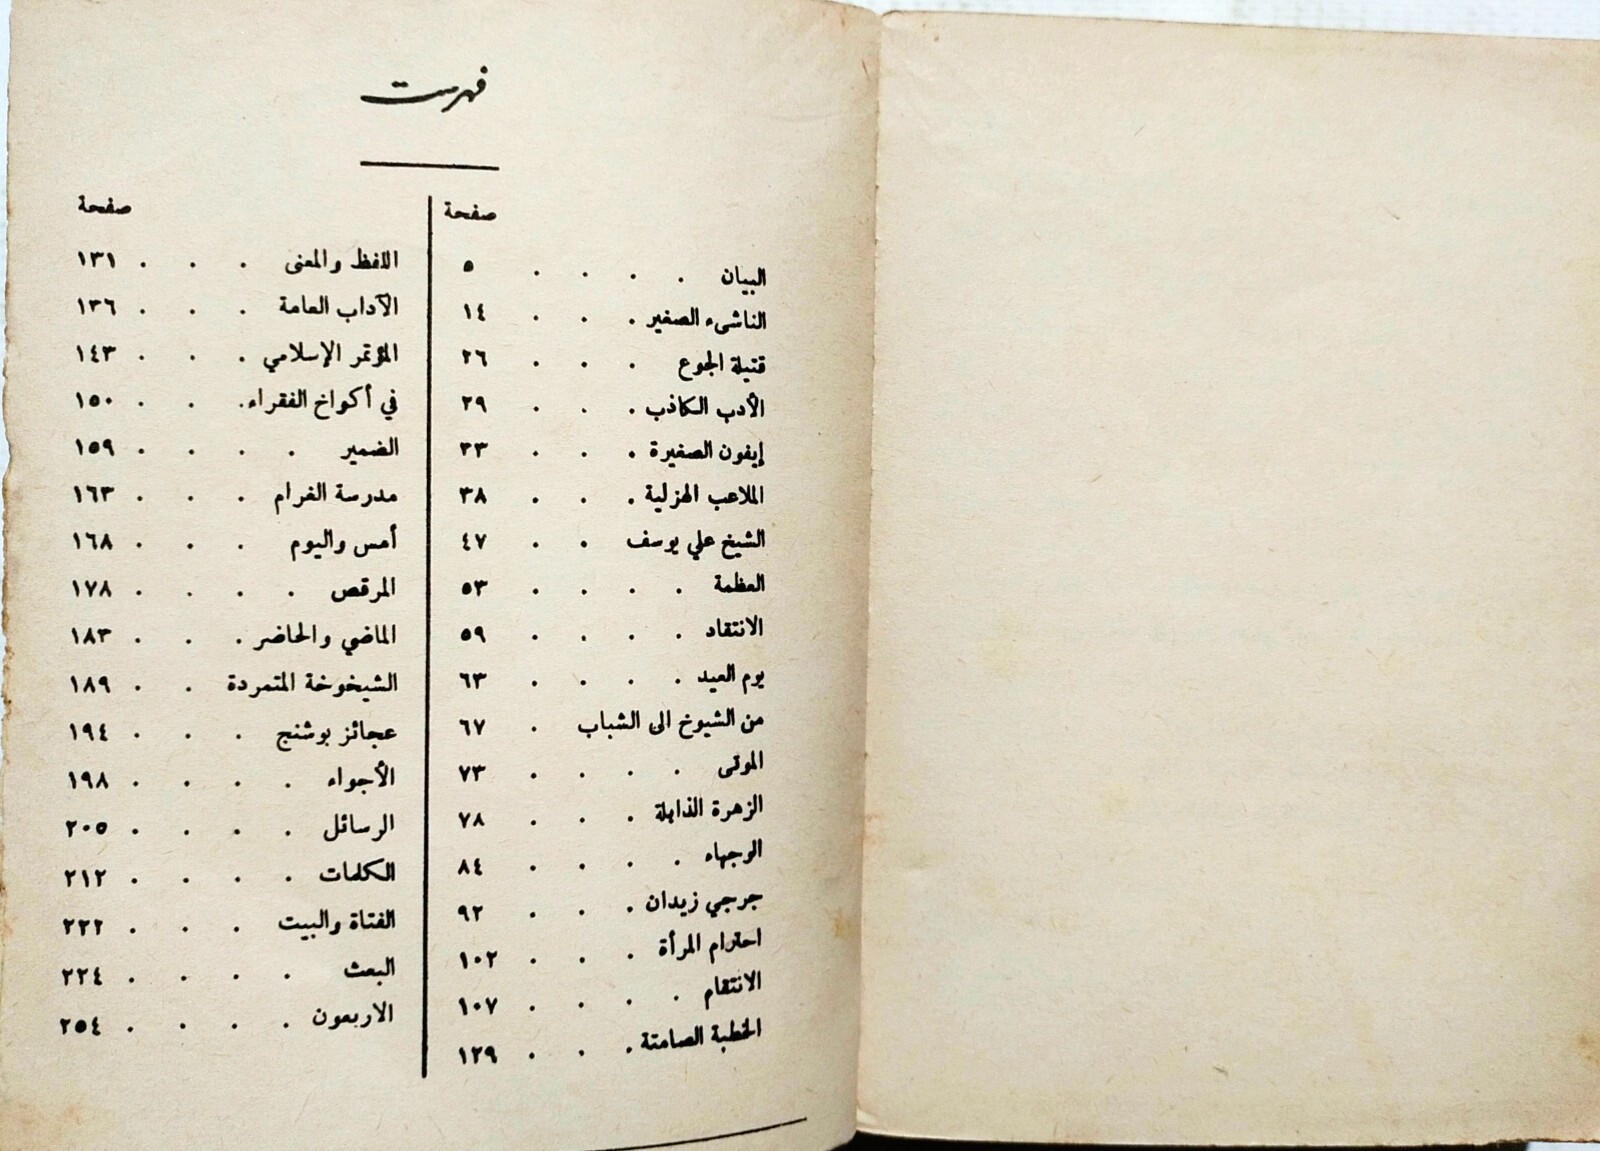 فهرست
صفحة
البيان . . . . ٥
الناشىء الصغير . . . ١٤
قتيلة الجوع . . . ٢٦
الأدب الكاذب . . . ٢٩
إيفون الصغيرة . . . ٣٣
الملاعب الهزلية . . . ٣٨
الشيخ علي يوسف . . ٤٧
العظمة . . . . ٥٣
الانتقاد . . . . ٥٩
يوم العيد . . . . ٦٣
من الشيوخ الى الشباب . ٦٧
الموتى . . . . ٧٣
الزهرة الذابلة . . . ٧٨
الوجهاء . . . . ٨٤
جرجي زيدان . . . ٩٢
احترام المرأة . . . ١٠٢
الانتقام . . . . ١٠٧
الخطبة الصامتة . . . ١٢٩
صفحة
اللفظ والمعنى . . . ١٣١
الآداب العامة . . . ١٣٦
المؤتمر الإسلامي . . . ١٤٣
في أكواخ الفقراء . . . ١٥٠
الضمير . . . . ١٥٩
مدرسة الغرام . . . ١٦٣
أمس واليوم . . . ١٦٨
المرقص . . . . ١٧٨
الماضي والحاضر . . . ١٨٣
الشيخوخة المتمردة . . ١٨٩
عجائز بوشنج . . . ١٩٤
الأجواء . . . . ١٩٨
الرسائل . . . . ٢٠٥
الكلمات . . . . ٢١٢
الفتاة والبيت . . . ٢٢٢
البعث . . . . ٢٢٤
الاربعون . . . . ٢٥٤